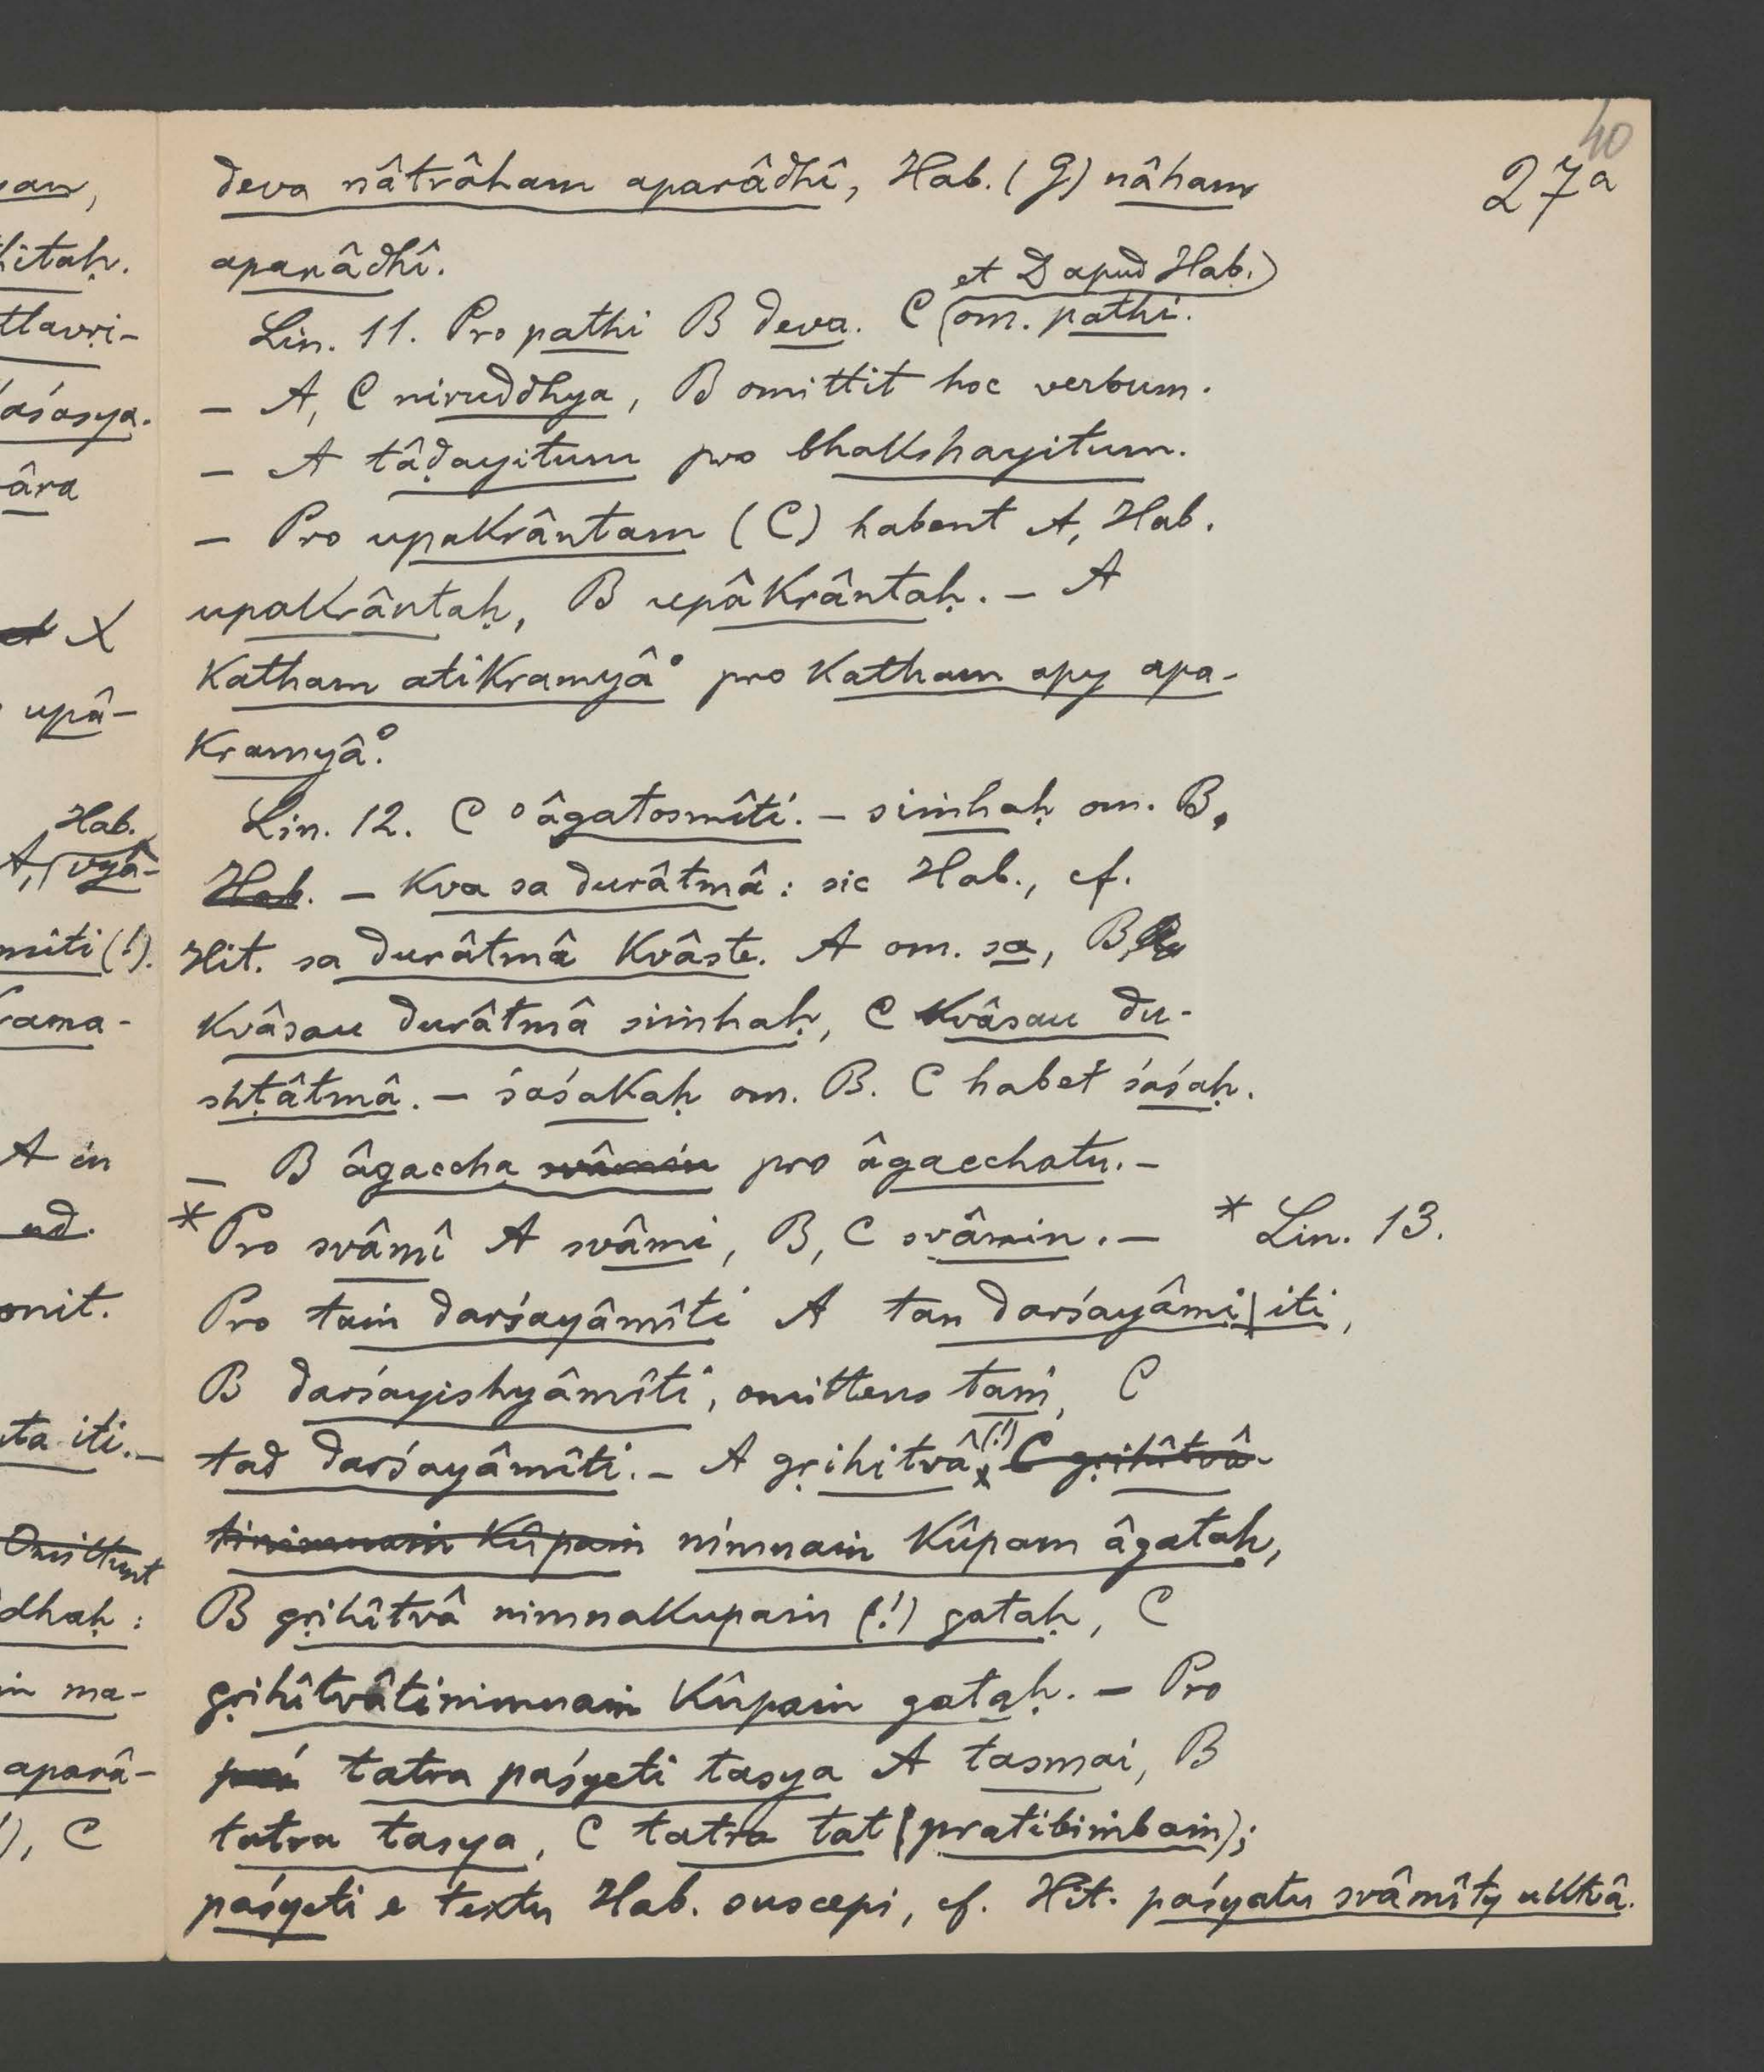 40
27a
deva nâtrâham aparâdhî, Hab. (G) nâham
aparâdhî.
et D apud Hab.)
Lin. 11. Pro pathi B deva. C (om. pathi.
– A, C niruddhya, B omittit hoc verbum.
– A tâḍayitum pro bhakshayitum.
– Pro upakrântam (C) habent A, Hab.
upakrântaḥ, B upâkrântaḥ. – A
katham atikramyâ° pro katham apy apa-
kramyâ°.
Lin. 12. C °âgatosmîti. – siṁhaḥ om. B.
Hab. – kva sa durâtmâ: sic Hab., cf.
Hit. sa durâtmâ kvâste. A om. sa, B
kvâsau durâtmâ siṁhaḥ, C kvâsau du-
shṭâtmâ. – śaśakaḥ om. B. C habet śaśaḥ.
– B âgaccha svâmin pro âgacchatu. –
*Pro svâmî A svâmi, B, C svâmin. – * Lin. 13.
Pro taṁ darśayâmîti A tan darśayâmi | iti,
B darśayishyâmîti, omittens taṁ, C
tad darśayâmîti. – A gṛihitvâ (!) C gṛihîtvâ-
tinimnaṁ kûpaṁ nimnaṁ kûpam âgataḥ,
B gṛihîtvâ nimnakupaṁ (!) gataḥ, C
gṛihîtvâtinimnaṁ kûpaṁ gataḥ. – Pro
tatra paśyeti tasya A tasmai, B
tatra tasya, C tatra tat (pratibimbaṁ);
paśyeti e textu Hab. suscepi, cf. Hit. paśyatu svâmîty uktvâ.
an,
hitaḥ.
ttavṛi-
aśasya.
âra
et X
upâ-
Hab.
A, (vyâ-
mîti (!).
rama-
A in
ud.
onit.
ta iti. –
Omittunt
dhaḥ:
ma-
aparâ-
!), C